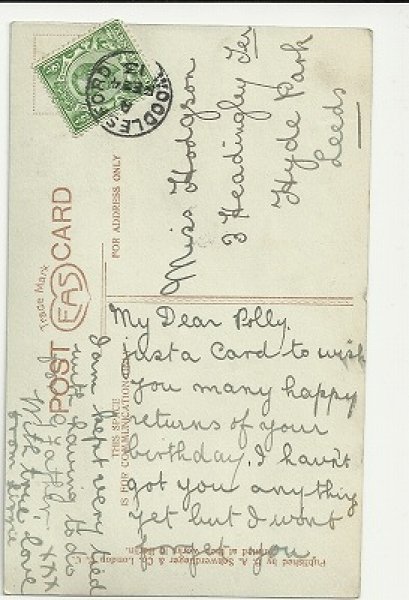 POST CARD
Trade Mark
EAS
FOR ADDRESS ONLY
THIS SPACE
IS FOR COMMUNICATION
WOODLESFORD
Miss Hodgson
3 Headingley Ter
Hyde Park
Leeds
My Dear Polly.
just a Card to wish
you many happy
returns of your
birthday. I havn't
got you anything
yet but I wont
forget you
I am kept very tied
with having to do
for Father xxx
With love, love
from
Published by E. A. Schwerdtfeger & Co. London E. C.
Printed at their works in Berlin.